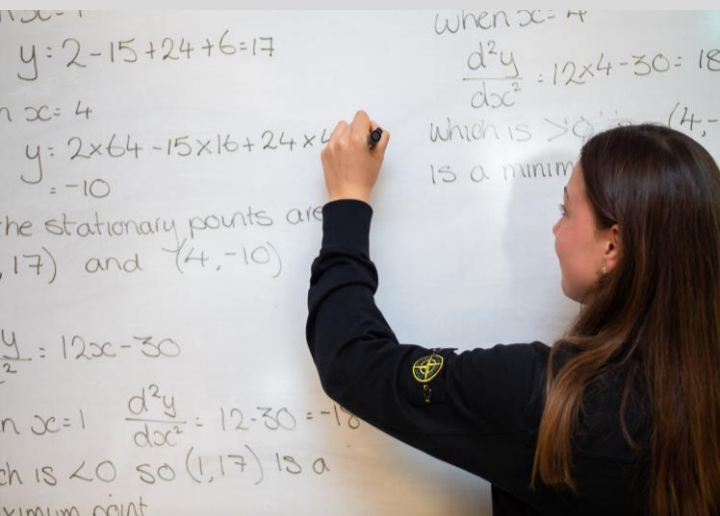 y = 2-15+24+6=17
x = 4
y = 2×64 -15×16+24×4
= -10
the stationary points are
,17) and (4,-10)
= 12x-30
x=1 d²y/dx² = 12-30 = -18
is <0 so (1,17) is a
point
when x = 4
d²y/dx² = 12×4-30= 18
which is >0 (4,-
is a